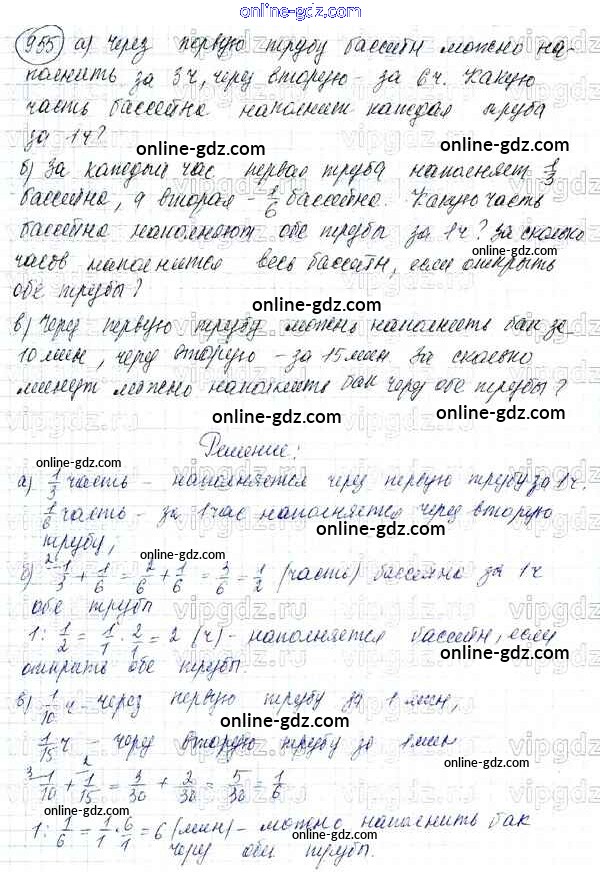 online-gdz.com
955 а) Через первую трубу бассейн можно на-
полнить за 3ч, через вторую - за 6ч. Какую
часть бассейна наполнит каждая труба
за 1ч?
online-gdz.com
б) За каждый час первая труба наполняет 1/3
бассейна, а вторая - 1/6 бассейна. Какую часть
online-gdz.com
бассейна наполняют обе трубы за 1ч? За сколько
часов наполнится весь бассейн, если открыть
online-gdz.com
обе трубы?
online-gdz.com
в) Через первую трубу можно наполнить бак за
10 мин, через вторую - за 15 мин За сколько
online-gdz.com
минут можно наполнить бак через обе трубы?
online-gdz.com
Решение:
online-gdz.com
а) 1/3 часть - наполняется через первую трубу за 1ч.
1/6 часть - за 1 час наполняется через вторую
online-gdz.com
трубу;
online-gdz.com
б) 1/3 + 1/6 = 2/6 + 1/6 = 3/6 = 1/2 (часть) бассейна за 1ч
обе трубы
online-gdz.com
1 : 1/2 = 1/1 · 2/1 = 2 (ч) - наполняется бассейн, если
online-gdz.com
открыть обе трубы.
online-gdz.com
в) 1/10 ч - через первую трубу за 1 мин,
online-gdz.com
1/15 ч - через вторую трубу за 1 мин
online-gdz.com
1/10 + 1/15 = 3/30 + 2/30 = 5/30 = 1/6
online-gdz.com
1 : 1/6 = 1/1 · 6/1 = 6 (мин) - можно наполнить бак
через обе трубы.
online-gdz.com